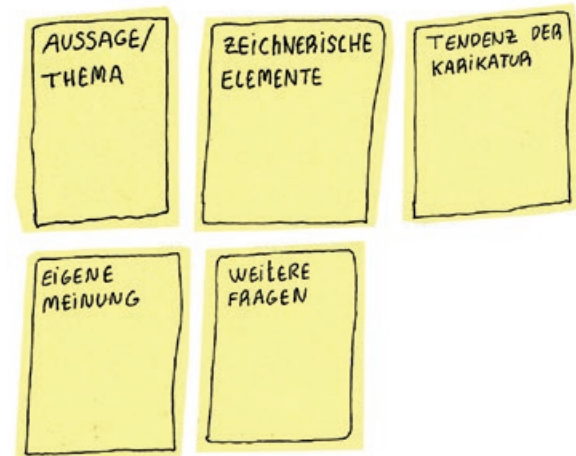 AUSSAGE/
THEMA
ZEICHNERISCHE
ELEMENTE
TENDENZ DER
KARIKATUR
EIGENE
MEINUNG
WEITERE
FRAGEN